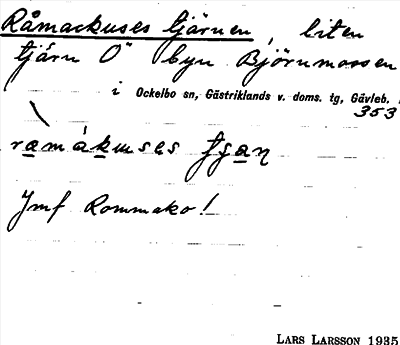 Råmackuses tjärnen, liten
tjärn O" byn Björnmossen
i Ockelbo sn, Gästriklands v. doms. tg, Gävleb.
353
Jmf Rommako!
LARS LARSSON 1935